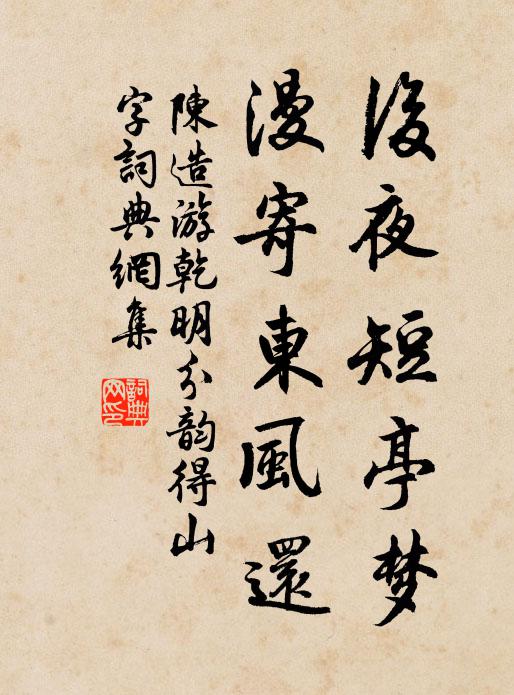 後夜短亭梦
漫寄東風還
陳造游乾明分韵得山
字詞典網集
詞典网印